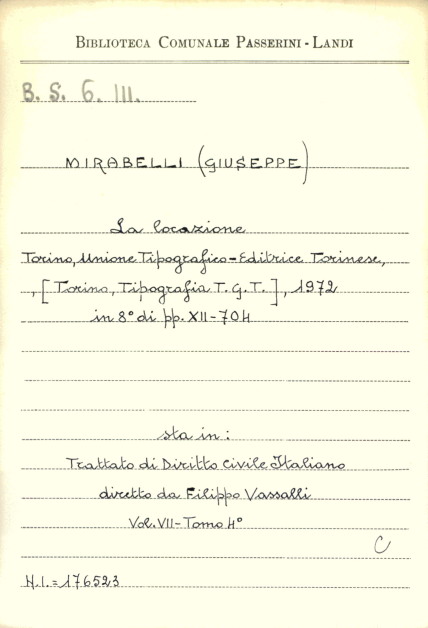 BIBLIOTECA COMUNALE PASSERINI - LANDI
B. S. 6. III.
MIRABELLI (GIUSEPPE)
La locazione
Torino, Unione Tipografico-Editrice Torinese,
, [Torino, Tipografia T. G. T.], 1972
in 8° di pp. XII-704
sta in:
Trattato di Diritto Civile Italiano
diretto da Filippo Vassalli
Vol. VII - Tomo 4°
C
N.I. = 176523